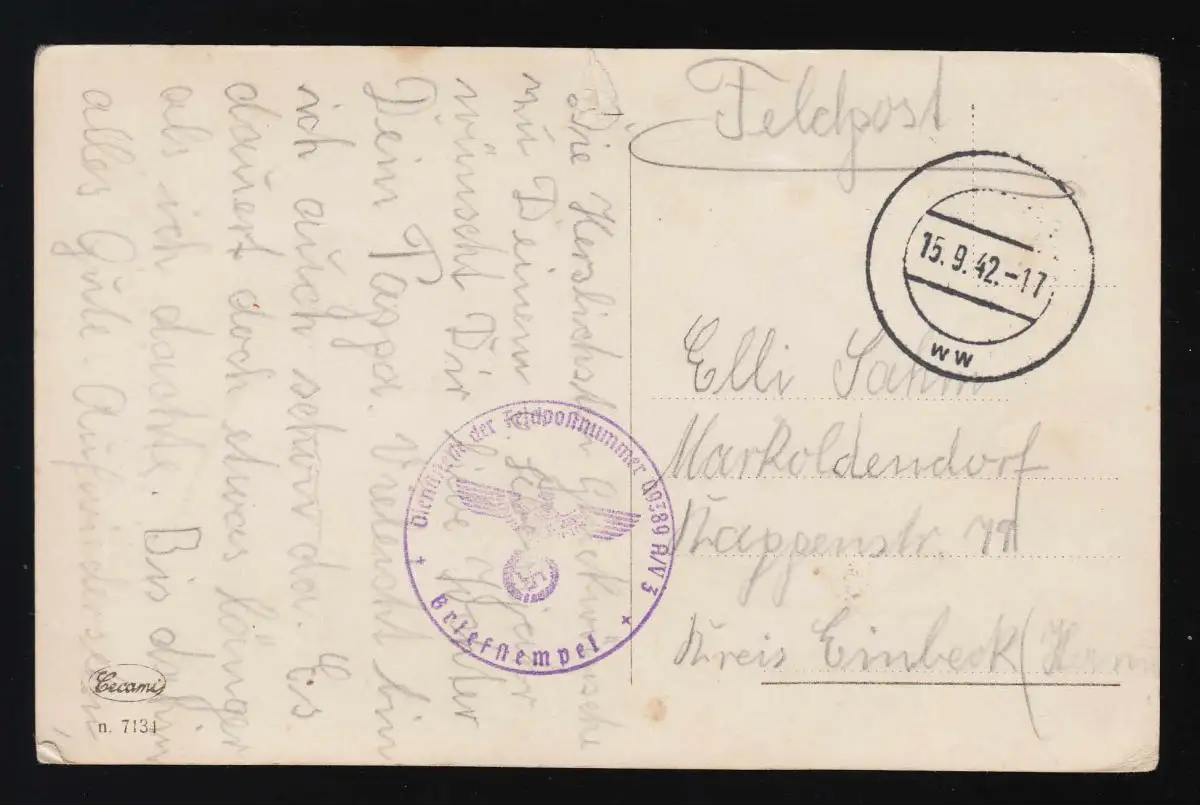 Feldpost
15.9.42.-17
ww
Elli Sahm
Markoldendorf
Kreis Einbeck (Hann
Dienststelle der Feldpostnummer A/V 3
+ Briefstempel +
Die Herzlichsten Glückwünsche
zu Deinem
wünscht Dir
Dein Pappa. Vileicht bin
ich auch schon da. Es
dauert doch etwas länger
als ich dachte. Bis dahin
alles Gute. Aufwiedersehn
Cecami
n. 7134